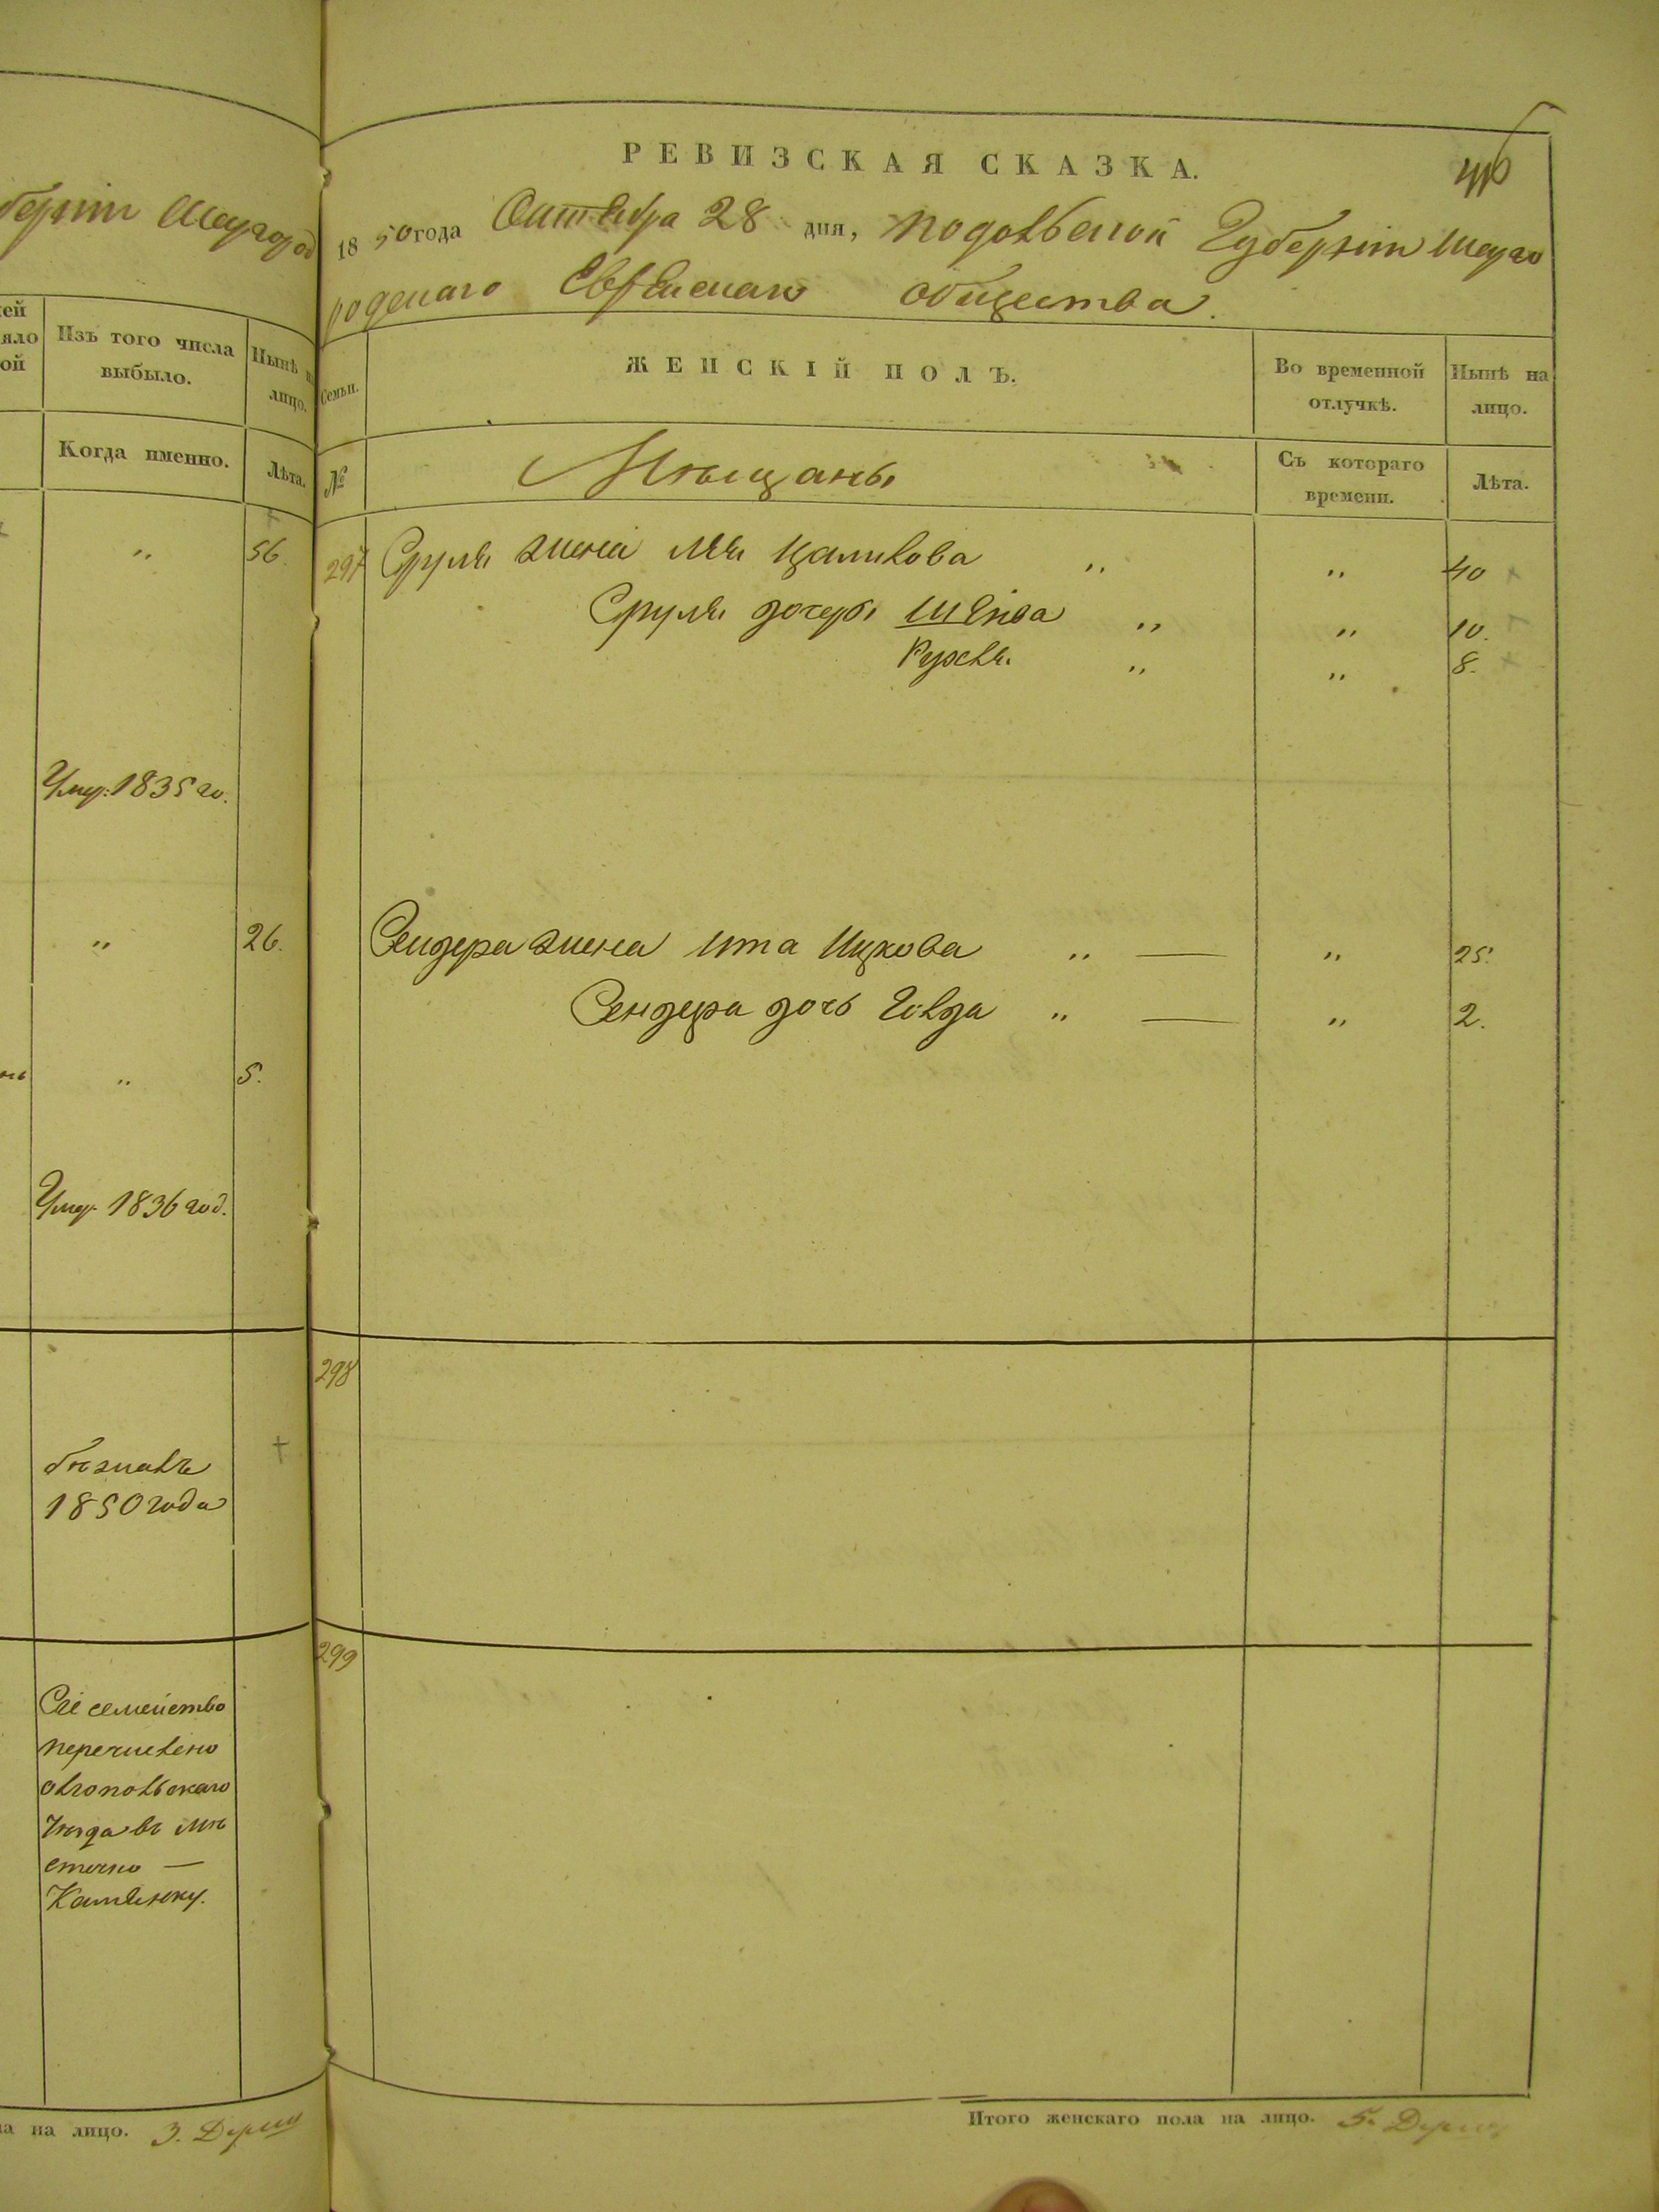 берніи Шаргород
Изъ того числа
выбыло.
Нынѣ на
лицо.
Когда именно.
Лѣта.
" 56.
Умер: 1835 го.
" 26.
" 5.
Умер. 1836 год.
1850 года
Сіе семейство
перечислено
Ольгопольскаго
Уѣзда въ мѣ
стечко —
Каменку.
на лицо. 3.
РЕВИЗСКАЯ СКАЗКА.
1850 года Октября 28 дня, Подольской Губерніи Шарго
родскаго Еврейскаго общества.
Семьи.
ЖЕНСКІЙ ПОЛЪ.
Во временной
отлучкѣ.
Нынѣ на
лицо.
№
Мѣщанъ
Съ котораго
времени.
Лѣта.
297 Сруля жена Лея Цаликова " " 40
Сруля дочери Шейва " " 10.
Рухля " " 8.
Сендера жена Ита Ицкова " — " 25.
Сендера дочь Голда " — " 2.
298
299
Итого женскаго пола на лицо. 5.